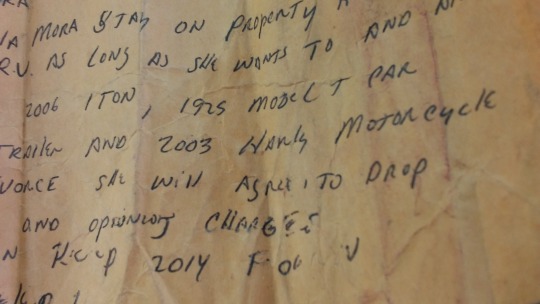 MORA STAY ON PROPERTY
R.V. AS LONG AS SHE WANTS TO AND
2006 1TON, 1925 MODEL T CAR
TRAILER AND 2003 HARLY MOTORCYCLE
VORCE SHE WILL AGREE TO DROP
AND CHARGES
KEEP 2014